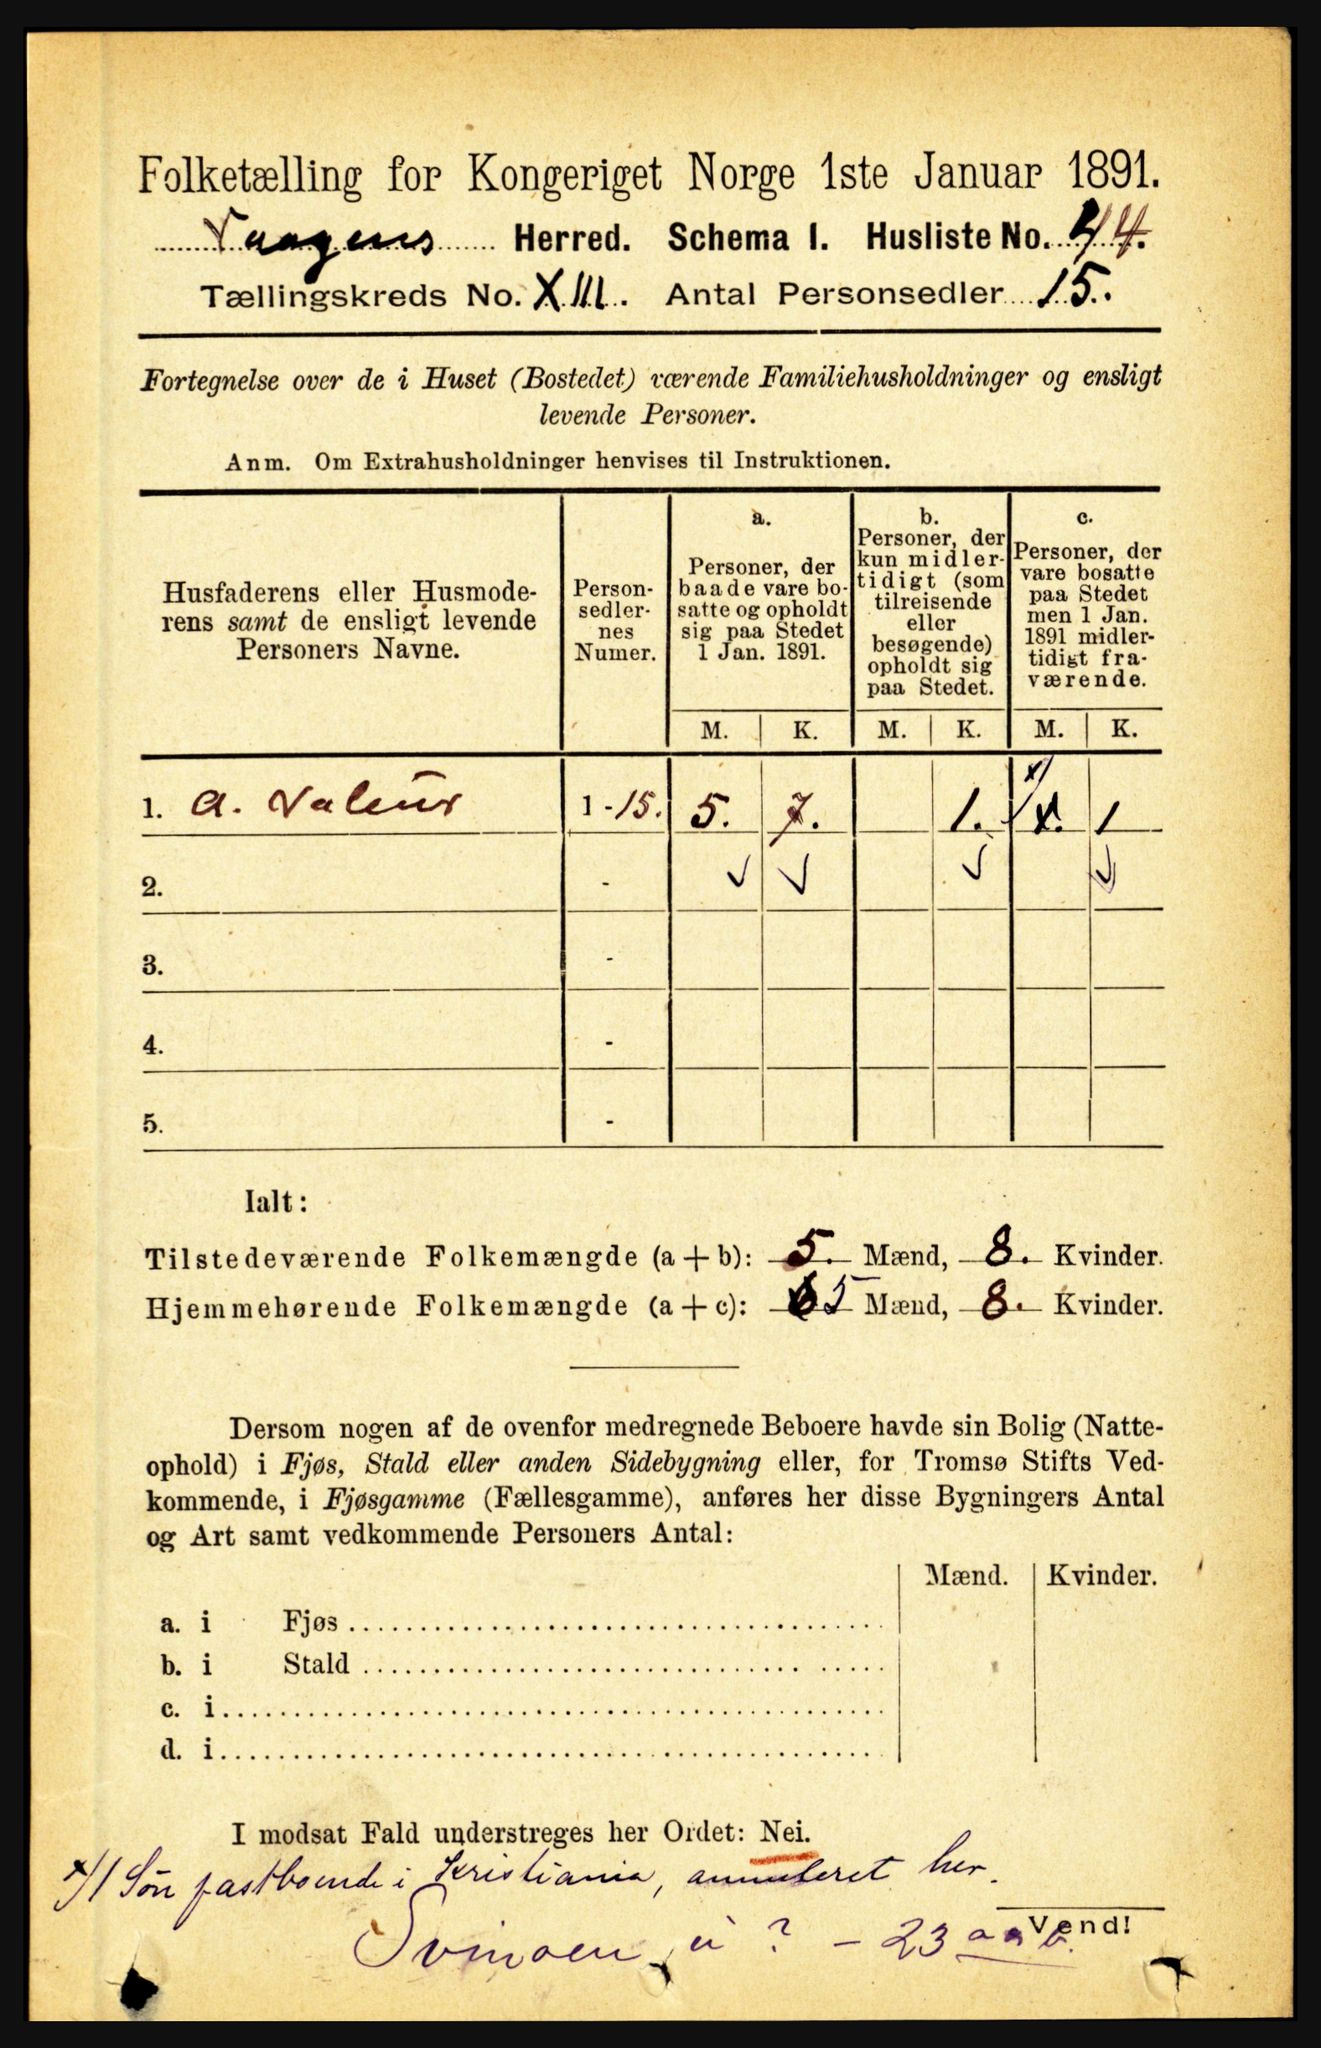 Folketælling for Kongeriget Norge 1ste Januar 1891.
Vaagens Herred. Schema I. Husliste No. 44.
Tællingskreds No. XIII. Antal Personsedler 15.
Fortegnelse over de i Huset (Bostedet) værende Familiehusholdninger og ensligt
levende Personer.
Anm. Om Extrahusholdninger henvises til Instruktionen.
Husfaderens eller Husmode-
rens samt de ensligt levende
Personers Navne.
Person-
sedler-
nes
Numer.
a.
Personer, der
baade vare bo-
satte og opholdt
sig paa Stedet
1 Jan. 1891.
b.
Personer, der
kun midler-
tidigt (som
tilreisende
eller
besøgende)
opholdt sig
paa Stedet.
c.
Personer, der
vare bosatte
paa Stedet
men 1 Jan.
1891 midler-
tidigt fra-
værende.
M. K. M. K. M. K.
1. A. Valeur 1-15. 5. 7. 1. x/ 1. 1
2. - √ √ √ √
3. -
4. -
5. -
Ialt:
Tilstedeværende Folkemængde (a + b): 5. Mænd, 8. Kvinder.
Hjemmehørende Folkemængde (a + c): 6 5 Mænd, 8. Kvinder.
Dersom nogen af de ovenfor medregnede Beboere havde sin Bolig (Natte-
ophold) i Fjøs, Stald eller anden Sidebygning eller, for Tromsø Stifts Ved-
kommende, i Fjøsgamme (Fællesgamme), anføres her disse Bygningers Antal
og Art samt vedkommende Personers Antal:
Mænd. Kvinder.
a. i Fjøs
b. i Stald
c. i
d. i
I modsat Fald understreges her Ordet: Nei.
x/ 1 Søn fastboende i Kristiania, annuleret her.
Vend!
Svinøen, ? - 23